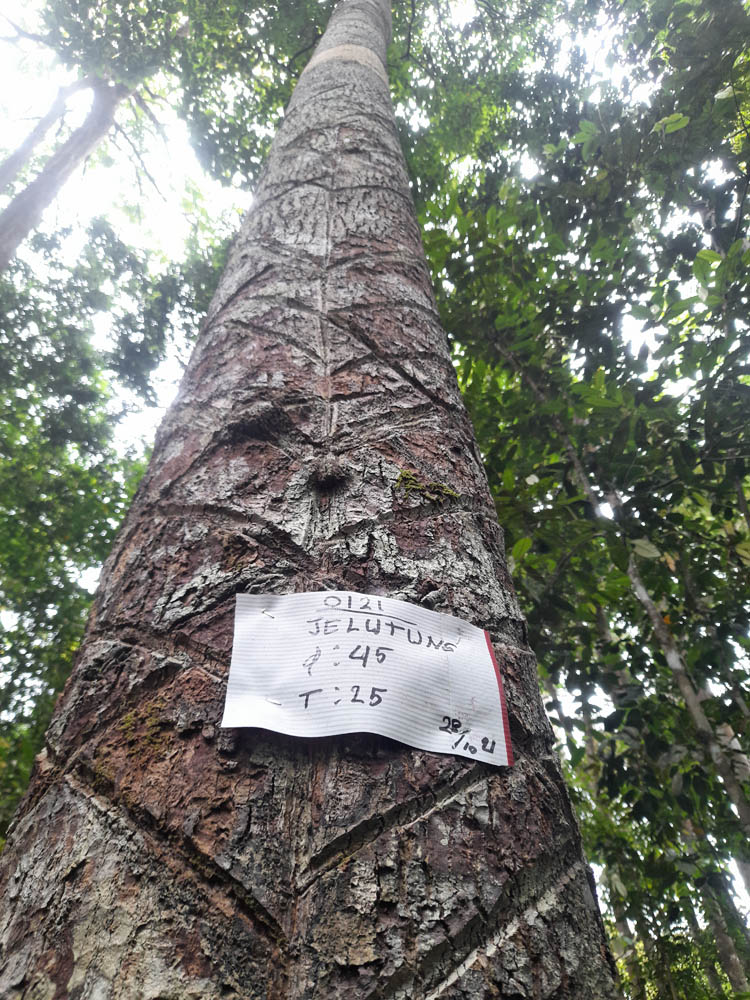 0121
JELUTUNG
φ: 45
T: 25
28/10 21